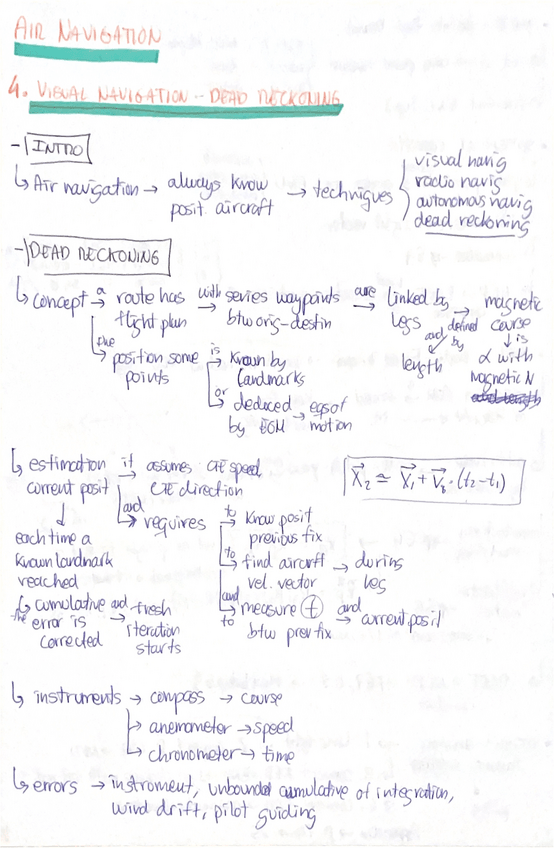 AIR NAVIGATION
4. VISUAL NAVIGATION - DEAD RECKONING
- INTRO
↳ Air navigation → always know posit. aircraft → techniques
visual navig
radio navig
autonomous navig
dead reckoning
- DEAD RECKONING
↳ concept → a route has flight plan → with series waypoints btw orig-destin → are linked by legs → and defined by length → magnetic course
↓ is
α with magnetic N
the → position some points → is known by landmarks
or → deduced by EOM → eqs of motion
↳ estimation current posit → it assumes CTE speed CTE direction
X₂ ≃ X₁ + V₁ · (t₂ - t₁)
and → requires → to know posit previous fix
to → find aircraft vel. vector → during leg
and to → measure t btw prev fix → and current posit
↓
each time a known landmark reached
↳ the cumulative error is corrected → and fresh iteration starts
↳ instruments → compass → course
→ anemometer → speed
→ chronometer → time
↳ errors → instrument, unbounded cumulative of integration,
wind drift, pilot guiding